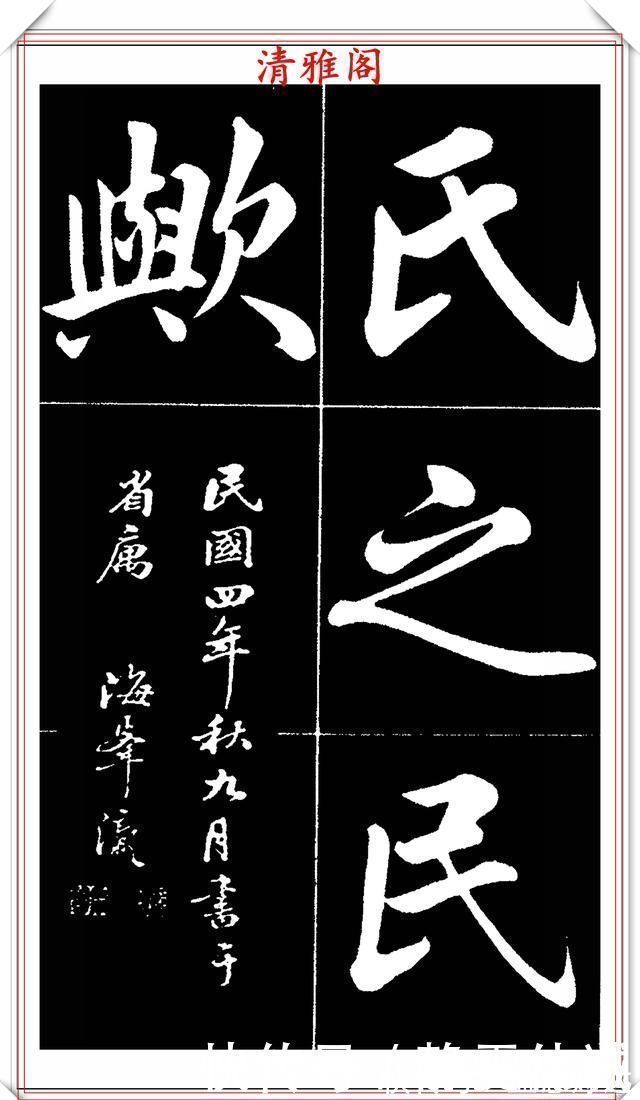 清雅阁
氏之民
歟
民國四年秋九月書于
省庽 海峯瀛